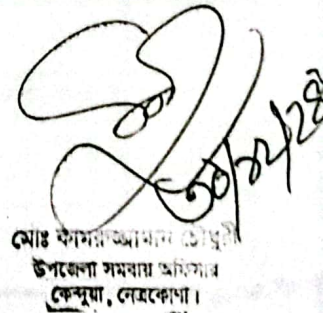 ৩০/১২/২৪
মোঃ কামরুজ্জামান চৌধুরী
উপজেলা সমবায় অফিসার
কেন্দুয়া, নেত্রকোণা।